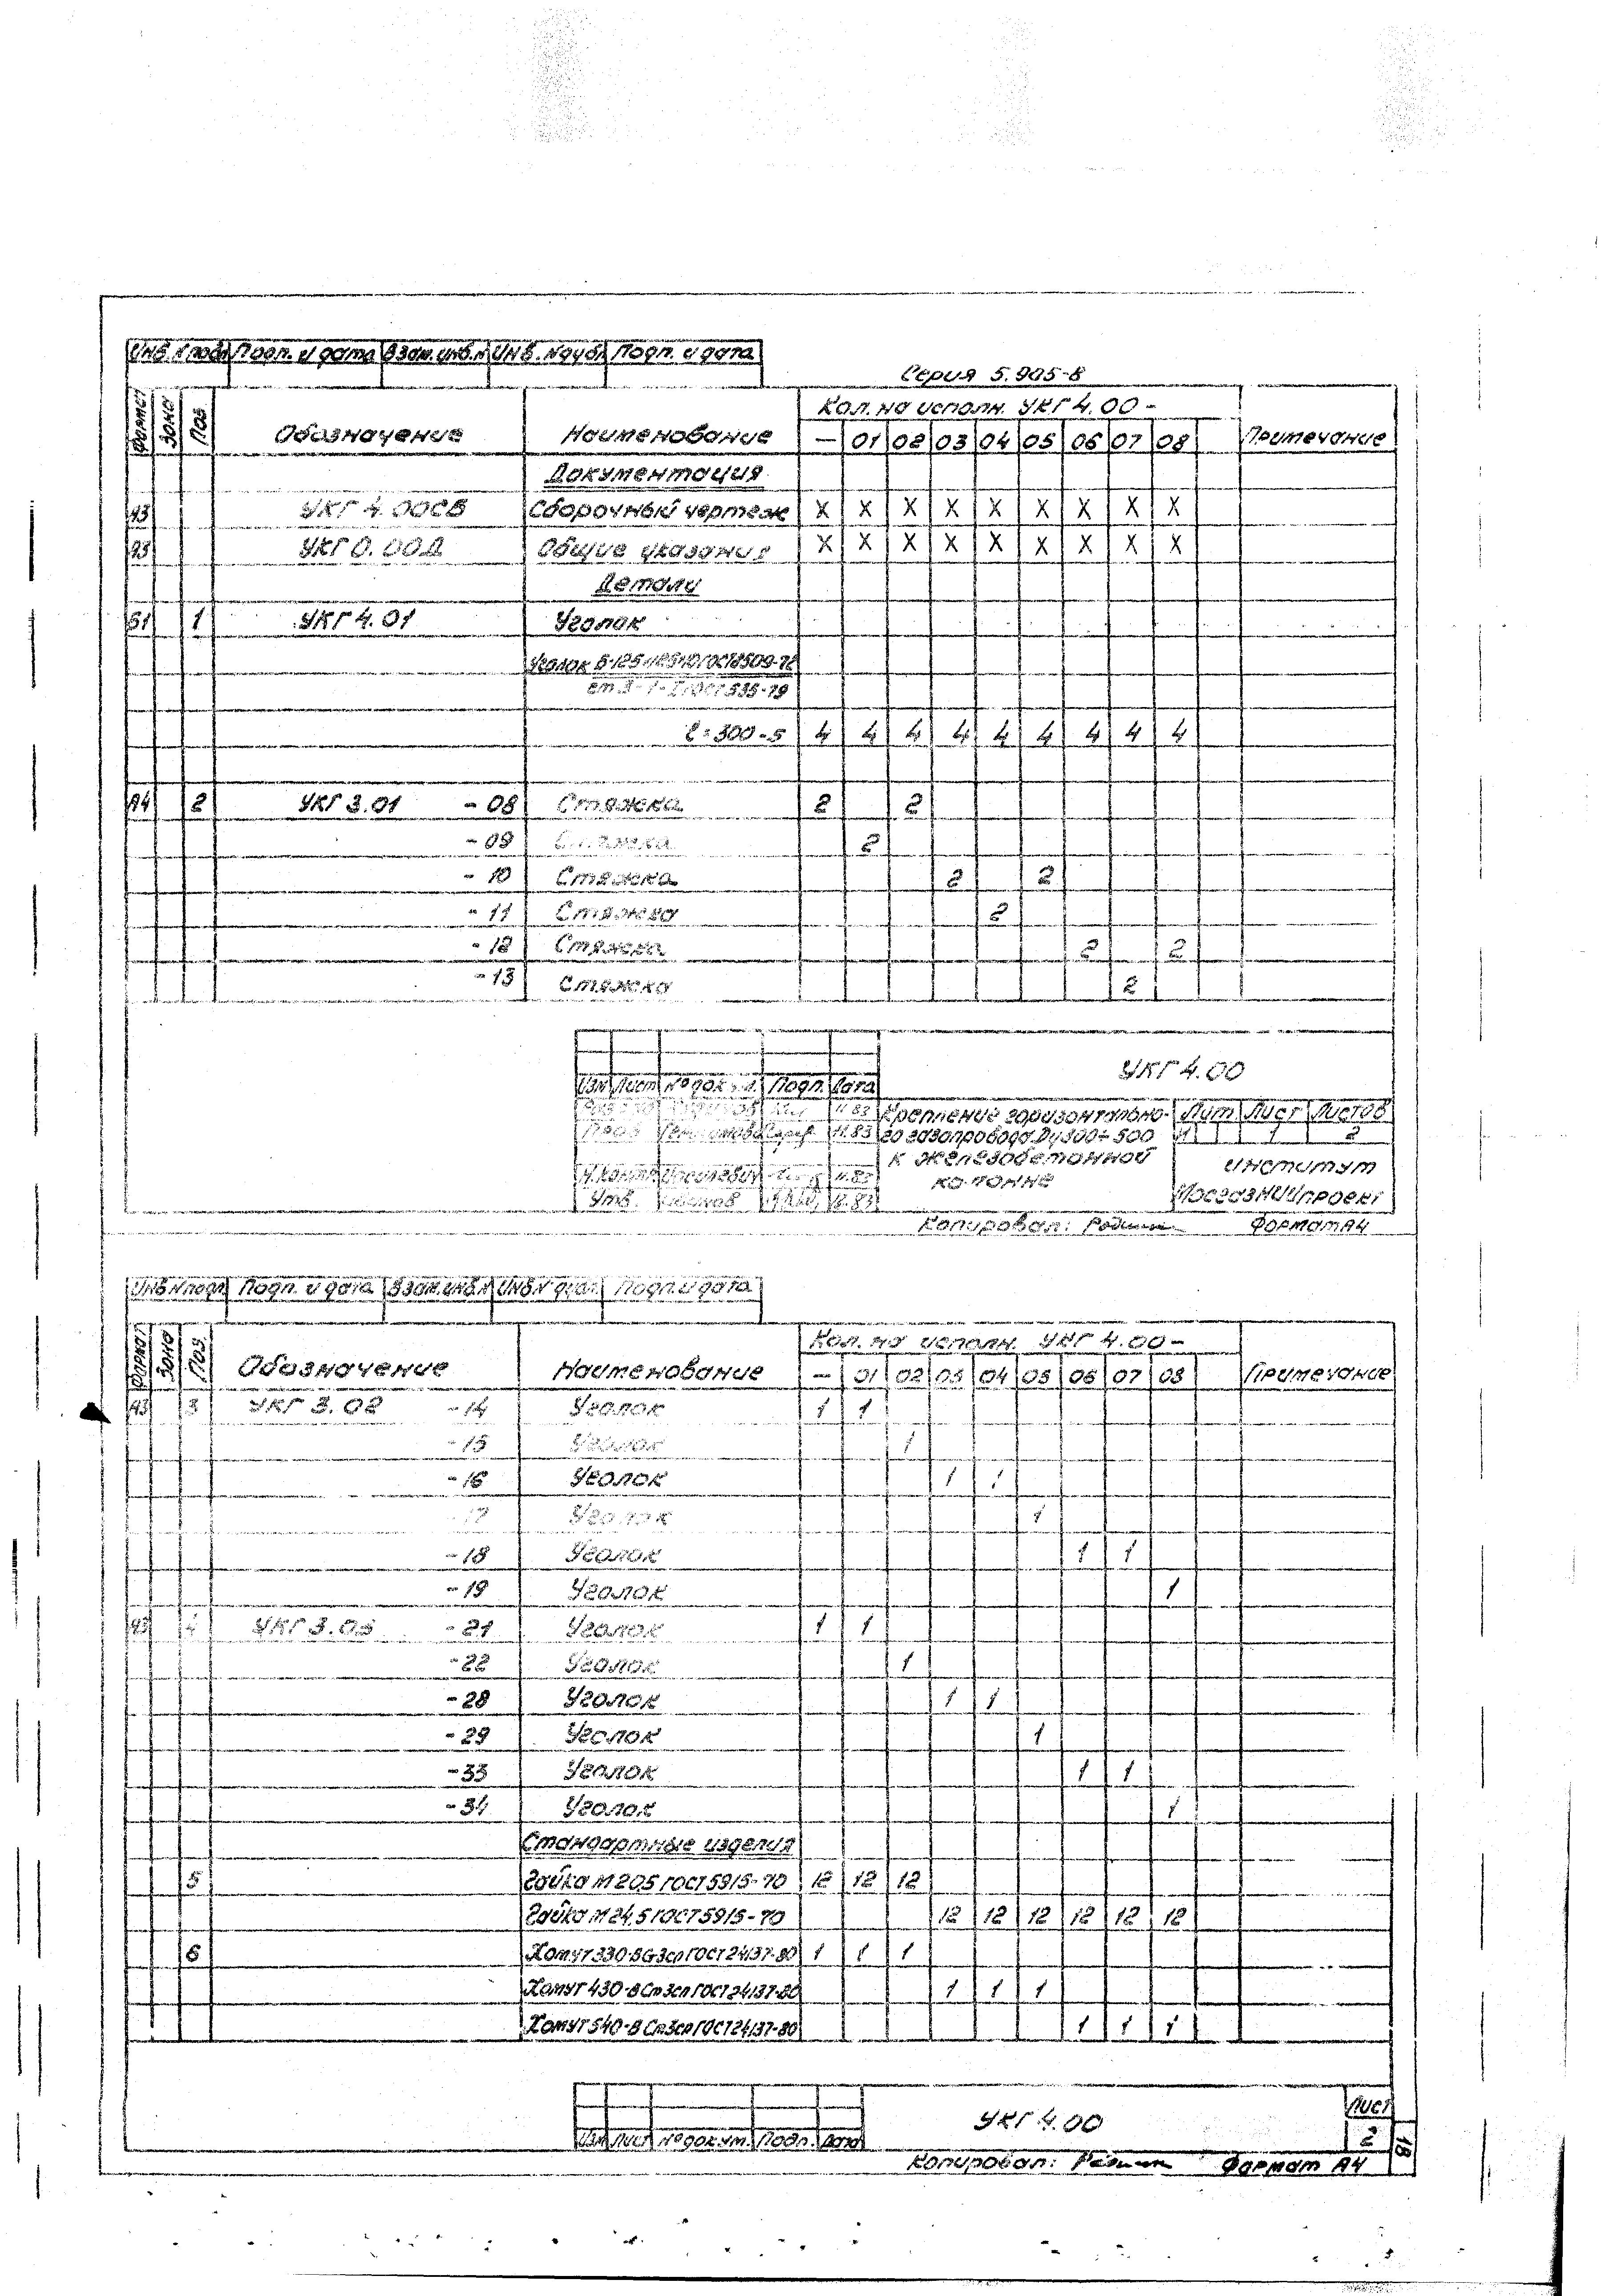 Инв.N подл Подп. и дата Взам.инв.N Инв.Nдубл Подп. и дата
Серия 5.905-8
Формат Зона Поз. Обозначение Наименование Кол. на исполн. УКГ 4.00- Примечание
— 01 02 03 04 05 06 07 08
Документация
А3 УКГ 4.00СБ Сборочный чертеж X X X X X X X X X
А3 УКГ 0.00Д Общие указания X X X X X X X X X
Детали
Б1 1 УКГ 4.01 Уголок
Уголок Б-125х125х10 ГОСТ 8509-72
ℓ=300-5 4 4 4 4 4 4 4 4 4
А4 2 УКГ 3.01 -08 Стяжка 2 2
-09 Стяжка 2
-10 Стяжка 2 2
-11 Стяжка 2
-12 Стяжка 2 2
-13 Стяжка 2
УКГ 4.00
Изм Лист № докум. Подп. Дата
11.83 Крепление горизонтально- Лит Лист Листов
Пров 11.83 го газопровода Ду 300÷500 И 1 2
к железобетонной институт
Н.контр 11.83 колонне
Утв. 12.83 Мосгазниипроект
Копировал: Формат А4
Инв.Nподл Подп. и дата Взам.инв.N Инв.N дубл. Подп. и дата
Формат Зона Поз. Обозначение Наименование Кол. на исполн. УКГ 4.00- Примечание
— 01 02 03 04 05 06 07 08
А3 3 УКГ 3.02 -14 Уголок 1 1
-15 Уголок 1
-16 Уголок 1 1
-17 Уголок 1
-18 Уголок 1 1
-19 Уголок 1
А3 4 УКГ 3.03 -21 Уголок 1 1
-22 Уголок 1
-28 Уголок 1 1
-29 Уголок 1
-33 Уголок 1 1
-34 Уголок 1
Стандартные изделия
5 Гайка М20.5 ГОСТ 5915-70 12 12 12
Гайка М24.5 ГОСТ 5915-70 12 12 12 12 12 12
6 Хомут 330-В Ст3сп ГОСТ 24137-80 1 1 1
Хомут 430-В Ст3сп ГОСТ 24137-80 1 1 1
Хомут 540-В Ст3сп ГОСТ 24137-80 1 1 1
УКГ 4.00 Лист
Изм Лист № докум. Подп. Дата 2
18
Копировал: Формат А4